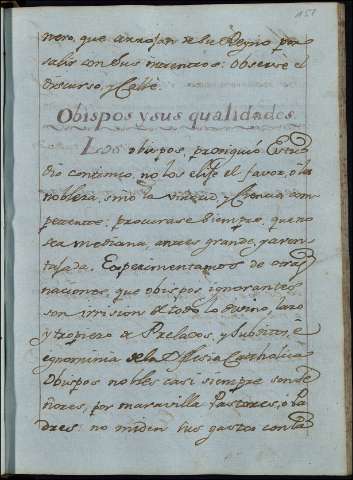 151
nero, que arrojan de la Reyno por
salir con sus intentos: observè el
discurso, y Callè.
Obispos y sus qualidades.
Los obispos, prosiguiò Estu
dio continuo, no los elije el favor, ò la
nobleza, sino la virtud, y Ciencia com
petente: procurase siempre, que no
sea mediana, antes grande, y aven
tajada. Experimentamos de otras
naciones, que obispos ignorantes
son irrision de todo lo divino, lazo
y tropiezo de Prelados, y Subditos, è
ygnominia de la Yglesia Catholica
Obispos nobles casi siempre son se
ñores, por maravilla Pastores, ò Pa
dres: no miden sus gastos con la